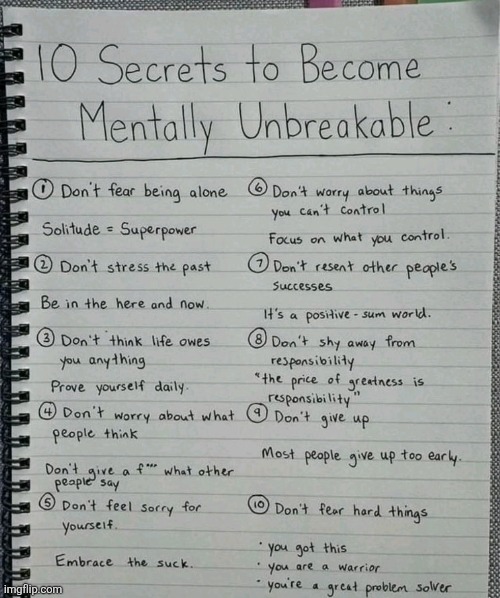 10 Secrets to Become
Mentally Unbreakable:
① Don't fear being alone
Solitude = Superpower
② Don't stress the past
Be in the here and now.
③ Don't think life owes
you anything
Prove yourself daily.
④ Don't worry about what
people think
Don't give a f*** what other
people say
⑤ Don't feel sorry for
yourself.
Embrace the suck.
⑥ Don't worry about things
you can't control
Focus on what you control.
⑦ Don't resent other people's
successes
It's a positive-sum world.
⑧ Don't shy away from
responsibility
"the price of greatness is
responsibility"
⑨ Don't give up
Most people give up too early.
⑩ Don't fear hard things
· you got this
· you are a warrior
· you're a great problem solver
imgflip.com